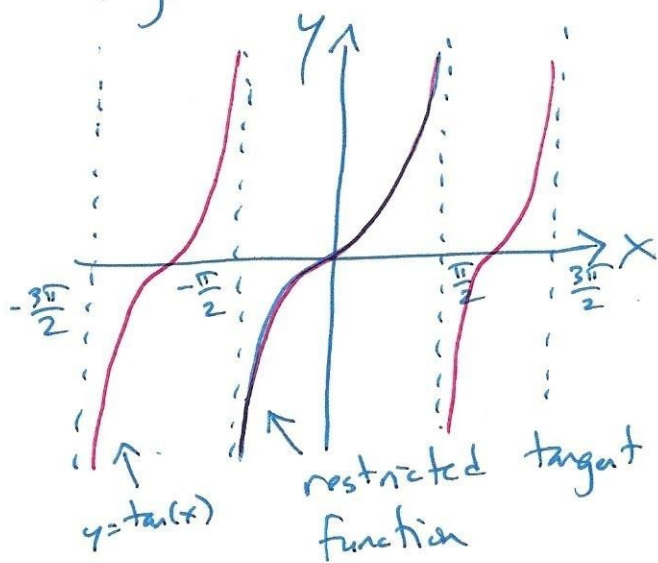 y
x
-3π/2
-π/2
π/2
3π/2
y=tan(x)
restricted tangent
function